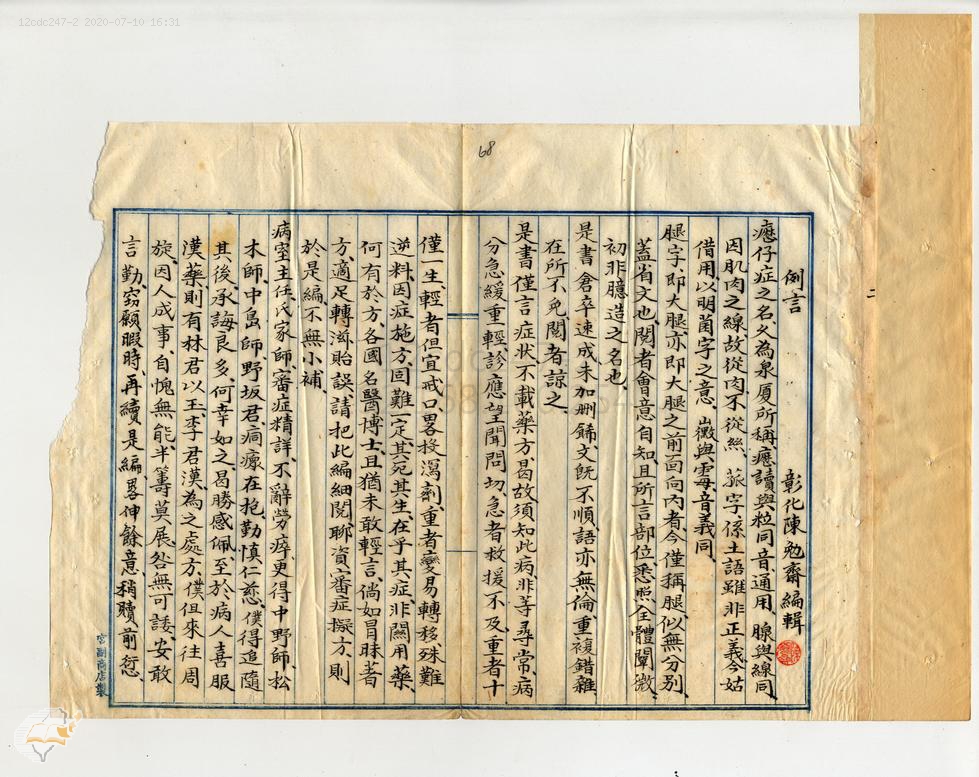 12cdc247-2 2020-07-10 16:31
68
例言
彰化陳勉齋編輯
瘧仔症之名久為泉厦所稱瘧讀與粒同音通用、腺與線同
因肌肉之線故從肉不從絲、菰字、係土語雖非正義今姑
借用以明菌字之意、黴與霉音義同、
腿字、即大腿亦即大腿之前面向內者今僅稱腿似無分別、
蓋省文也閱者會意自知且所言部位悉照全體闡微、
初非臆造之名也、
是書倉卒速成未加刪飾文既不順語亦無倫重複錯雜
在所不免閱者諒之、
是書僅言症狀不載藥方曷故須知此病非等尋常病
分急緩重輕診應望聞問切急者救援不及重者十
僅一生、輕者但宜戒口畧投瀉劑、重者變易轉移殊難
逆料因症施方固難一定其死其生、在乎其症、非關用藥、
何有於方、各國名醫博士、且猶未敢輕言、倘如冒昧著
方、適足轉滋貽誤、請把此編細閱、聊資審症擬方、則
於是編、不無小補、
病室主任氏家師、審症精詳、不辭勞瘁、更得中野師、松
本師中島師野坂君痌瘝在抱、勤慎仁慈、僕得追隨
其後、承誨良多、何幸如之、曷勝感佩、至於病人喜服
漢藥、則有林君以玉、李君漢、為之處方、僕但來往周
旋、因人成事、自愧無能、半籌莫展、咎無可諉、安敢
言勤、窃願暇時、再續是編、畧伸餘意、稍贖前愆、
宮副商店製